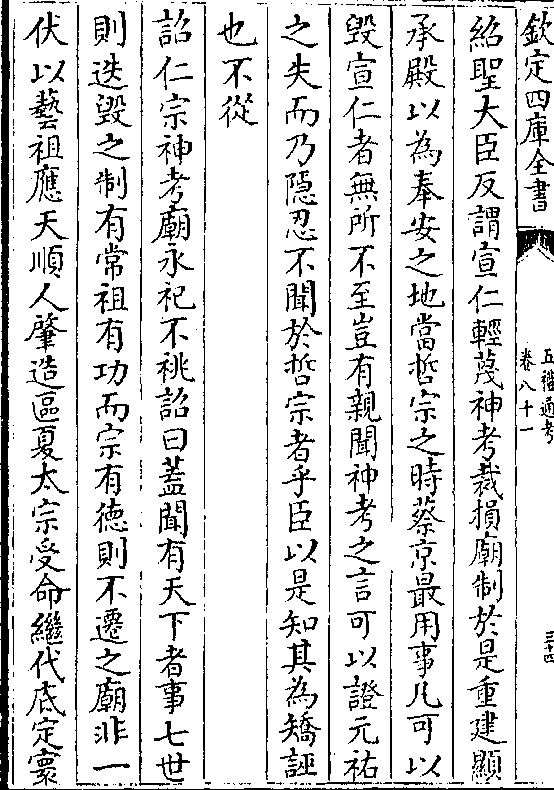 欽定四庫全書
五禮通考
卷八十一
三十四
紹聖大臣反謂宣仁輕蔑神考裁損廟制於是重建顯
承殿以為奉安之地當哲宗之時蔡京最用事凡可以
毀宣仁者無所不至豈有親聞神考之言可以證元祐
之失而乃隱忍不聞於哲宗者乎臣以是知其為矯誣
也不從
詔仁宗神考廟永祀不祧詔曰蓋聞有天下者事七世
則迭毀之制有常祖有功而宗有德則不遷之廟非一
伏以藝祖應天順人肇造區夏太宗受命繼代底定寰